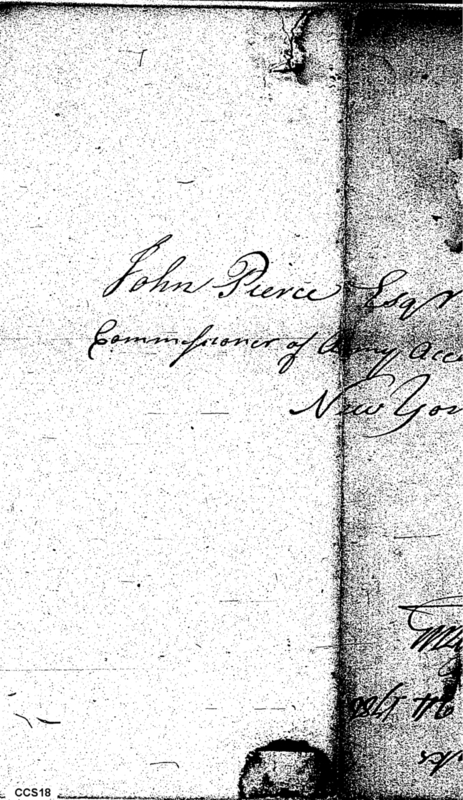 John Pierce Esqr
Commissioner of Army Acc
New Yor
CCS18